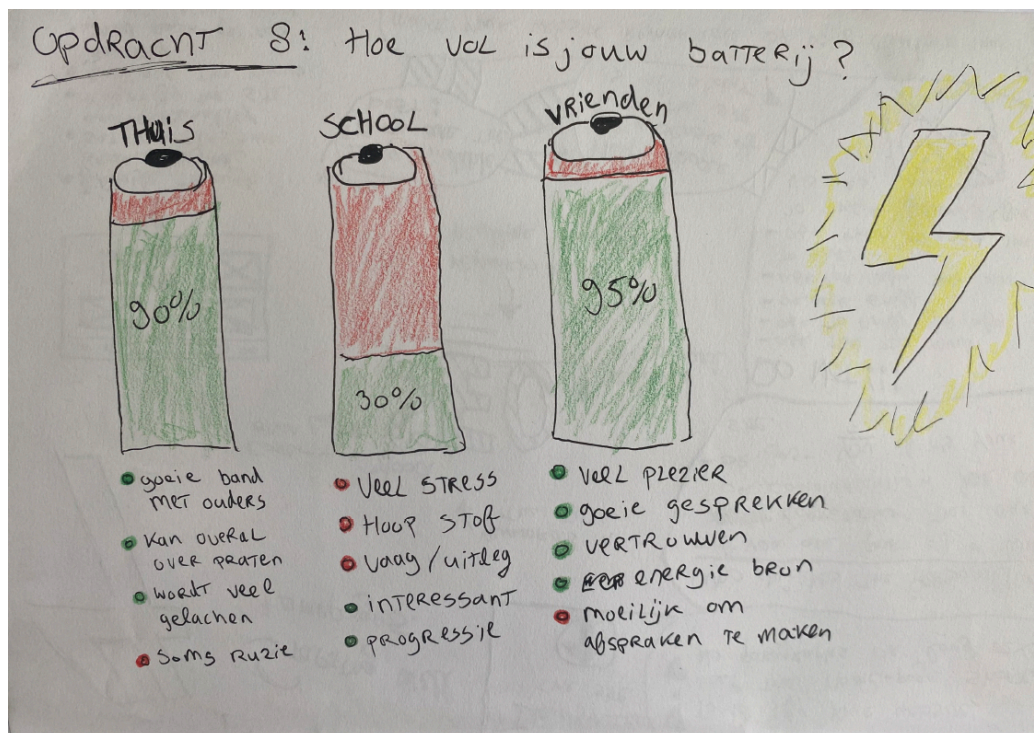 Opdracht 8: Hoe vol is jouw batterij?
THuis
90%
goeie band
met ouders
Kan overal
over praten
wordt veel
gelachen
Soms ruzie
SCHOOL
30%
Veel STRESS
Hoop stof
Vaag/uitleg
interessant
progressie
Vrienden
95%
Veel plezier
goeie gesprekken
vertrouwen
energie bron
moeilijk om
afspraken te maken